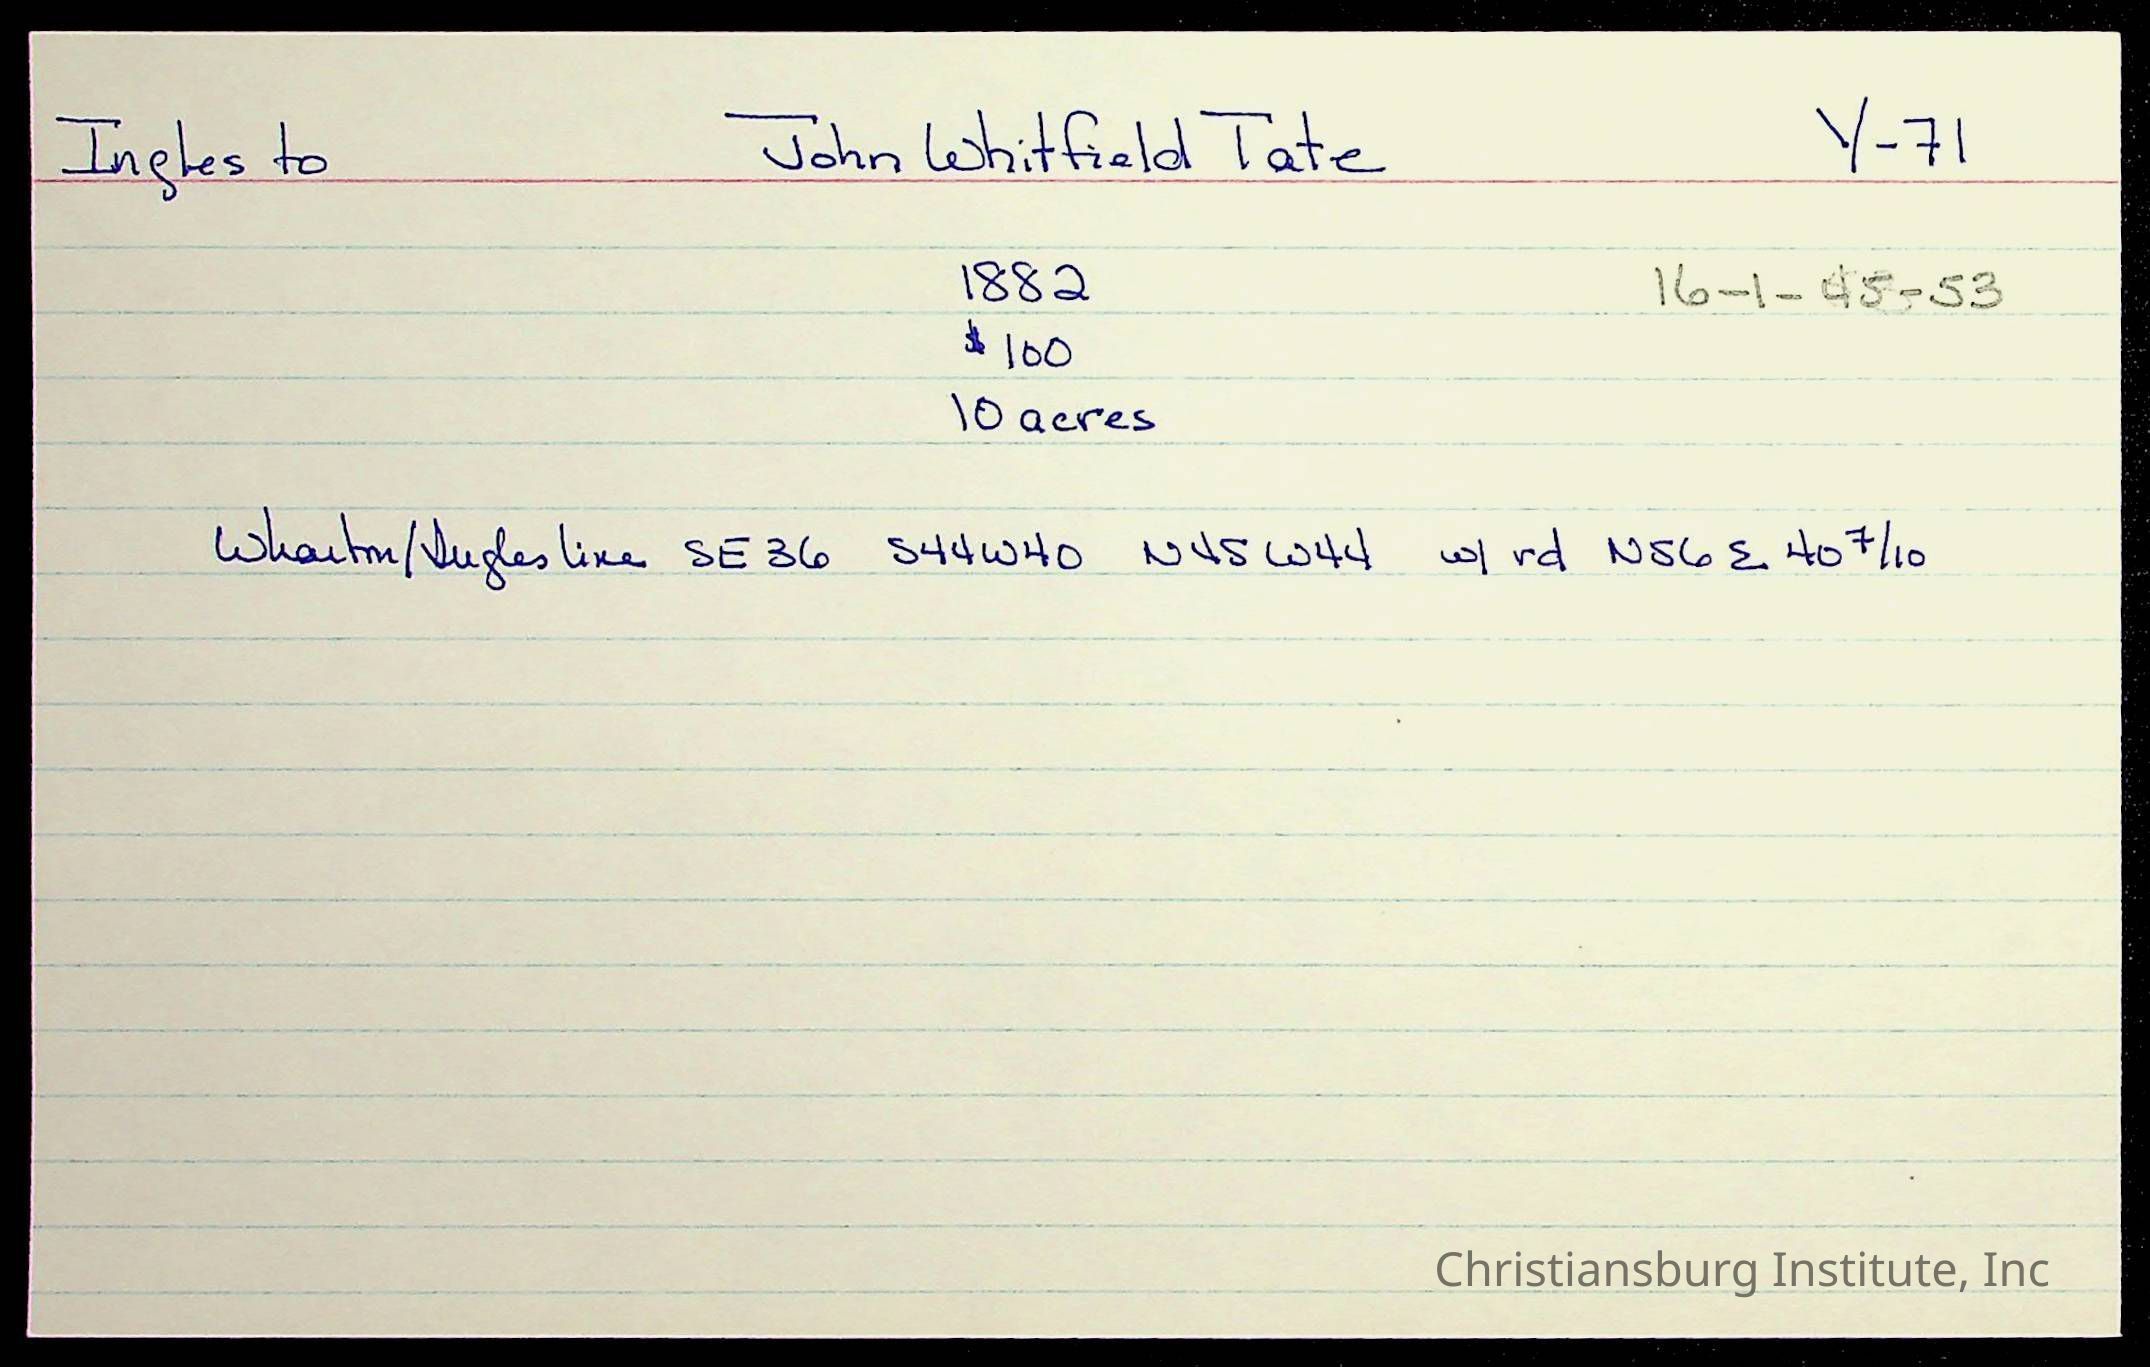 Ingles to John Whitfield Tate Y-71
1882 16-1-45-53
$100
10 acres
Wharton/Ingles line SE 36 S44W40 N45W44 w/ rd N56E 40 7/10
Christiansburg Institute, Inc